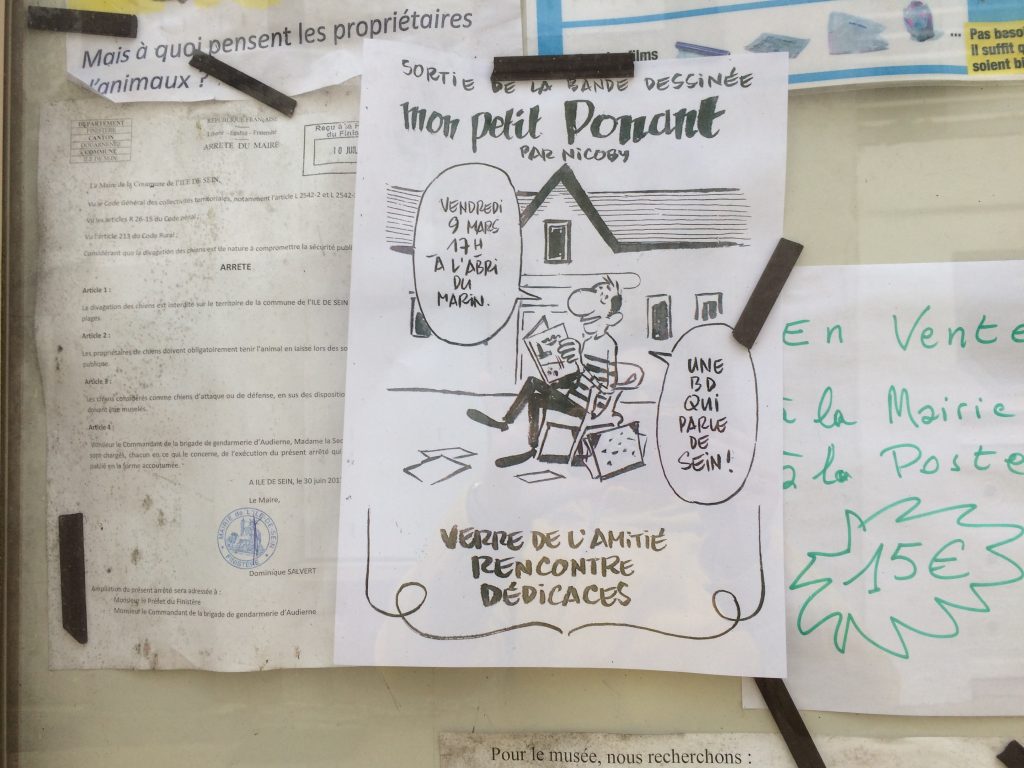 Mais à quoi pensent les propriétaires
d'animaux ?
films
... Pas beso
Il suffit q
soient bi
DÉPARTEMENT
FINISTÈRE
CANTON
DOUARNENEZ
COMMUNE
ILE DE SEIN
RÉPUBLIQUE FRANÇAISE
Liberté - Égalité - Fraternité
ARRETE DU MAIRE
Reçu à la
du Finis
10 JUIL
Le Maire de la Commune de l'ILE DE SEIN,
Vu le Code Général des collectivités territoriales, notamment l'article L 2542-2 et L 2542-
Vu les articles R 26-15 du Code pénal ;
Vu l'article 213 du Code Rural ;
Considérant que la divagation des chiens est de nature à compromettre la sécurité publi
ARRETE
Article 1 :
La divagation des chiens est interdite sur le territoire de la commune de l'ILE DE SEIN
plages.
Article 2 :
Les propriétaires de chiens doivent obligatoirement tenir l'animal en laisse lors des so
publique.
Article 3 :
Les chiens considérés comme chiens d'attaque ou de défense, en sus des disposition
doivent être muselés.
Article 4 :
Monsieur le Commandant de la brigade de gendarmerie d'Audierne, Madame la Sec
sont chargés, chacun en ce qui le concerne, de l'exécution du présent arrêté qui
publié en la forme accoutumée.
A ILE DE SEIN, le 30 juin 201
Le Maire,
MAIRIE de L'ILE-DE-SEIN
FINISTÈRE
Dominique SALVERT
Ampliation du présent arrêté sera adressée à :
- Monsieur le Préfet du Finistère
- Monsieur le Commandant de la brigade de gendarmerie d'Audierne
SORTIE DE LA BANDE DESSINÉE
mon petit Ponant
PAR NICOBY
VENDREDI
9 MARS
17H
À L'ABRI
DU
MARIN.
UNE
BD
QUI
PARLE
DE
SEIN !
VERRE DE L'AMITIÉ
RENCONTRE
DÉDICACES
En Vente
à la Mairie
à la Poste
15€
Pour le musée, nous recherchons :